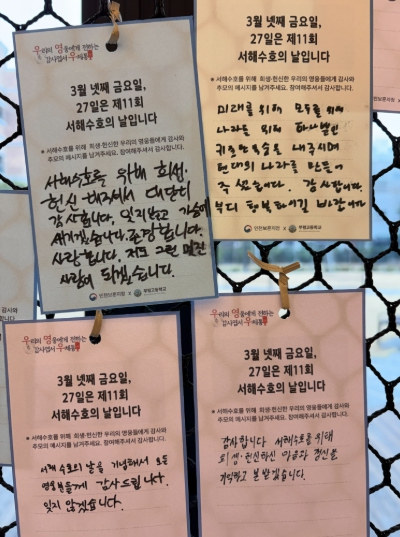 우리의 영웅에게 전하는
감사엽서 우체통
3월 넷째 금요일,
27일은 제11회
서해수호의 날입니다
※ 서해수호를 위해 희생·헌신한 우리의 영웅들에게 감사와
추모의 메시지를 남겨주세요. 참여해주셔서 감사합니다.
서해수호를 위해 희생.
헌신 해주셔서 대단히
감사합니다. 잊지않고 가슴에
새기겠습니다. 존경합니다.
사랑합니다. 저도 그런 멋진
사람이 되겠습니다.
인천보훈지청 X 부평고등학교
3월 넷째 금요일,
27일은 제11회
서해수호의 날입니다
※ 서해수호를 위해 희생·헌신한 우리의 영웅들에게 감사와
추모의 메시지를 남겨주세요. 참여해주셔서 감사합니다.
미래를 위해 모두를 위해
나라를 위해 하나뿐인
귀중한 목숨을 내주시며
현대의 나라를 만들어
주셨습니다. 감사합니다.
부디 행복하시길 바랍니다
인천보훈지청 X 부평고등학교
우리의 영웅에게 전하는
감사엽서 우체통
3월 넷째 금요일,
27일은 제11회
서해수호의 날입니다
※ 서해수호를 위해 희생·헌신한 우리의 영웅들에게 감사와
추모의 메시지를 남겨주세요. 참여해주셔서 감사합니다.
서해 수호의 날을 기념해서 모든
영웅분들께 감사드립니다.
잊지 않겠습니다.
우리의 영웅에게 전하는
감사엽서 우체통
3월 넷째 금요일,
27일은 제11회
서해수호의 날입니다
※ 서해수호를 위해 희생·헌신한 우리의 영웅들에게 감사와
추모의 메시지를 남겨주세요. 참여해주셔서 감사합니다.
감사합니다 서해수호를 위해
희생·헌신하신 마음과 정신을
기억하고 본받겠습니다.